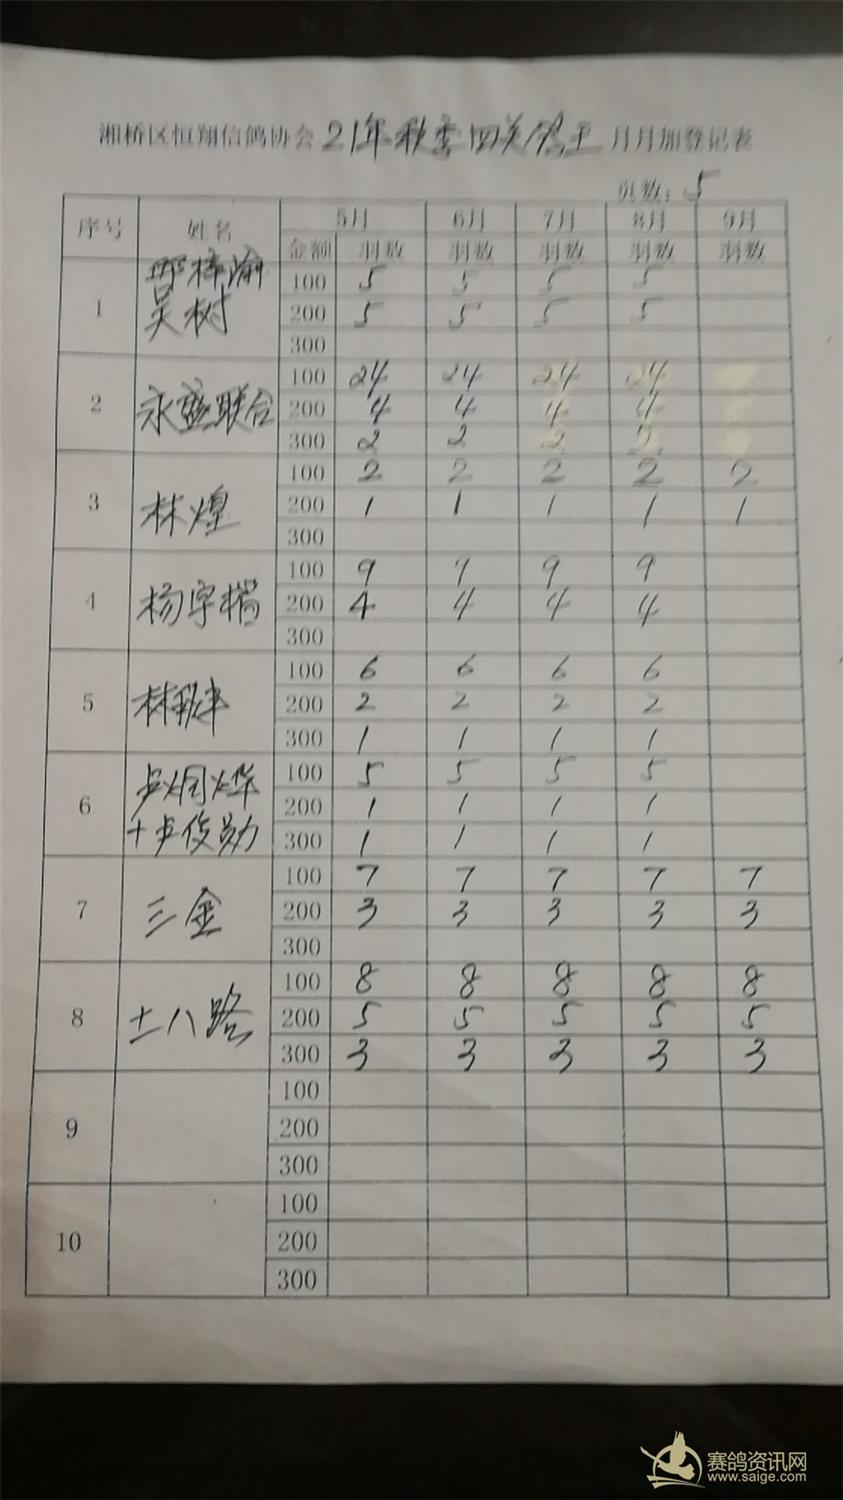 湘桥区恒翔信鸽协会21年秋季四关鸽王月月加登记表
页数：5
序号 姓名 5月 6月 7月 8月 9月
金额 羽数 羽数 羽数 羽数 羽数
1 100 5 5 5 5
吴树 200 5 5 5 5
300
2 永盛联合 100 24 24 24 24
200 4 4 4 4
300 2 2 2 2
3 林煌 100 2 2 2 2 2
200 1 1 1 1 1
300
4 杨宇 100 9 9 9 9
200 4 4 4 4
300
5 林 100 6 6 6 6
200 2 2 2 2
300 1 1 1 1
6 卢炯烨 100 5 5 5 5
+卢俊勋 200 1 1 1 1
300 1 1 1 1
7 三金 100 7 7 7 7 7
200 3 3 3 3 3
300
8 十八路 100 8 8 8 8 8
200 5 5 5 5 5
300 3 3 3 3 3
9 100
200
300
10 100
200
300
赛鸽资讯网
www.saige.com